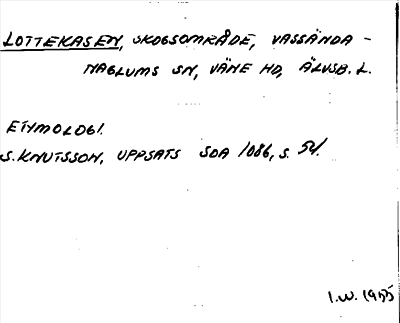 LOTTEKASEN, SKOGSOMRÅDE, VASSÄNDA -
NAGLUMS SN, VÄNE HD, ÄLVSB. L.
ETYMOLOGI.
S. KNUTSSON, UPPSATS SOA 1086, S. 54.
I.W. 1955